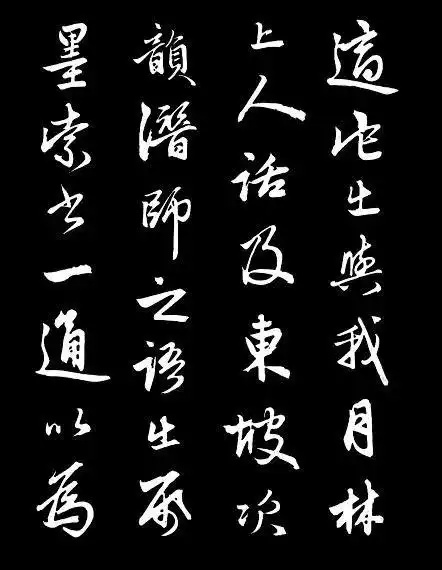 適它出與我月林
上人話及東坡次
韻潛師之語出帋
墨索書一通以為